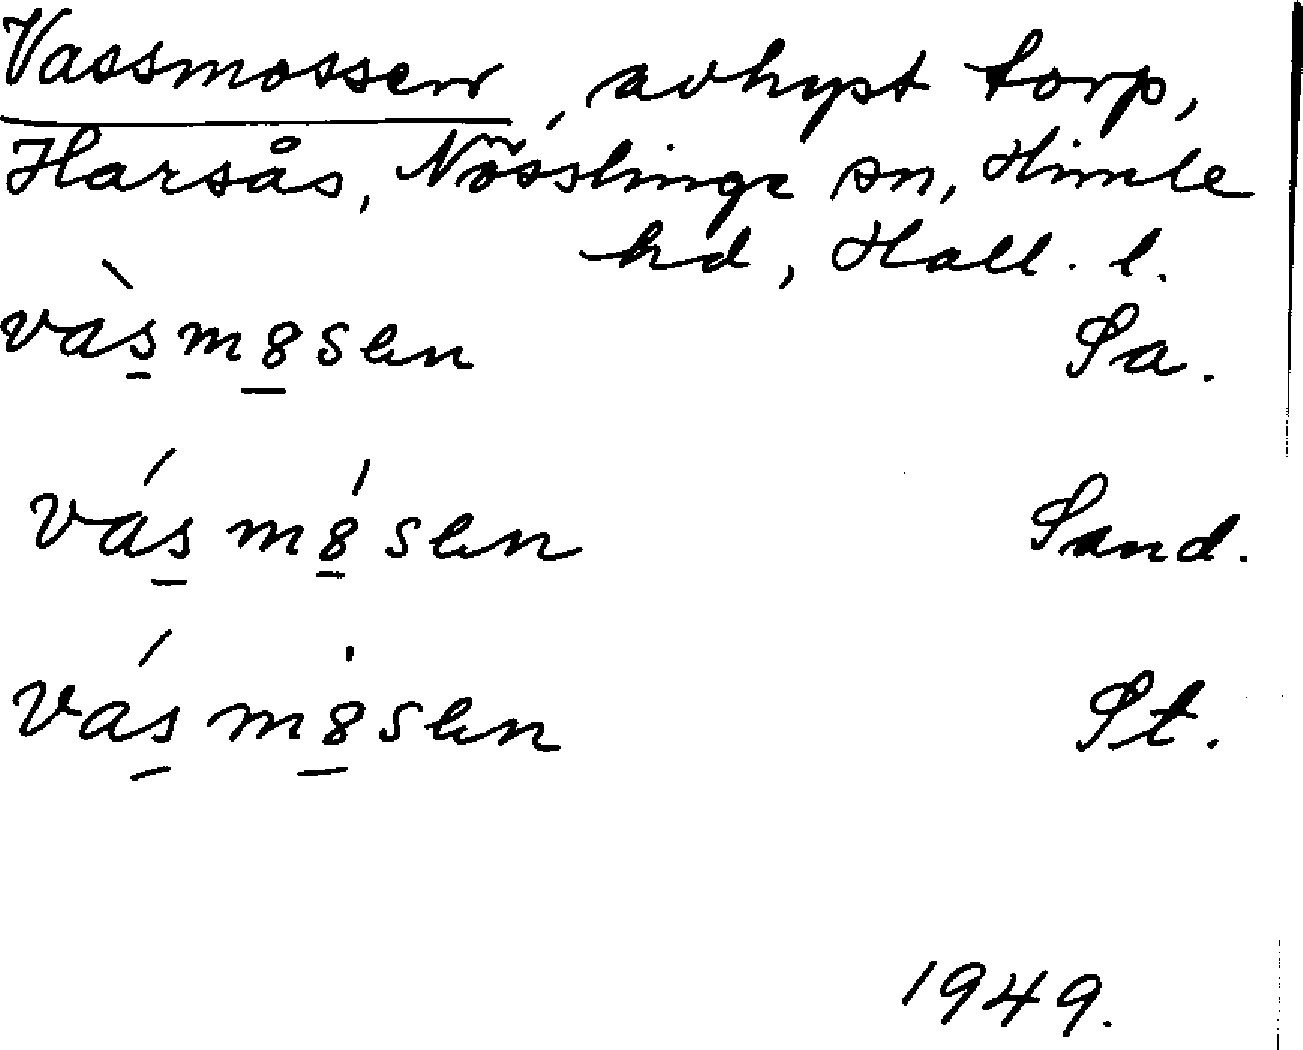 Vassmossen, avhyst torp,
Harsås, Nösslinge sn, Himle
hd, Hall. l.
vàs̲m8̲sen Sa.
vás̲m8̲́sen Sand.
vás̲m8̲̇sen St.
1949.